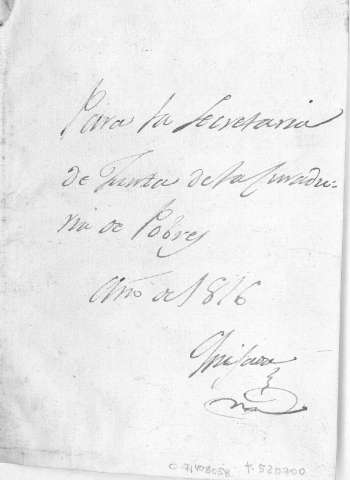 Para la Secretaria
de Junta de la Curadu=
ria de Pobres
Año de 1816
C. 71408058 t. 520700